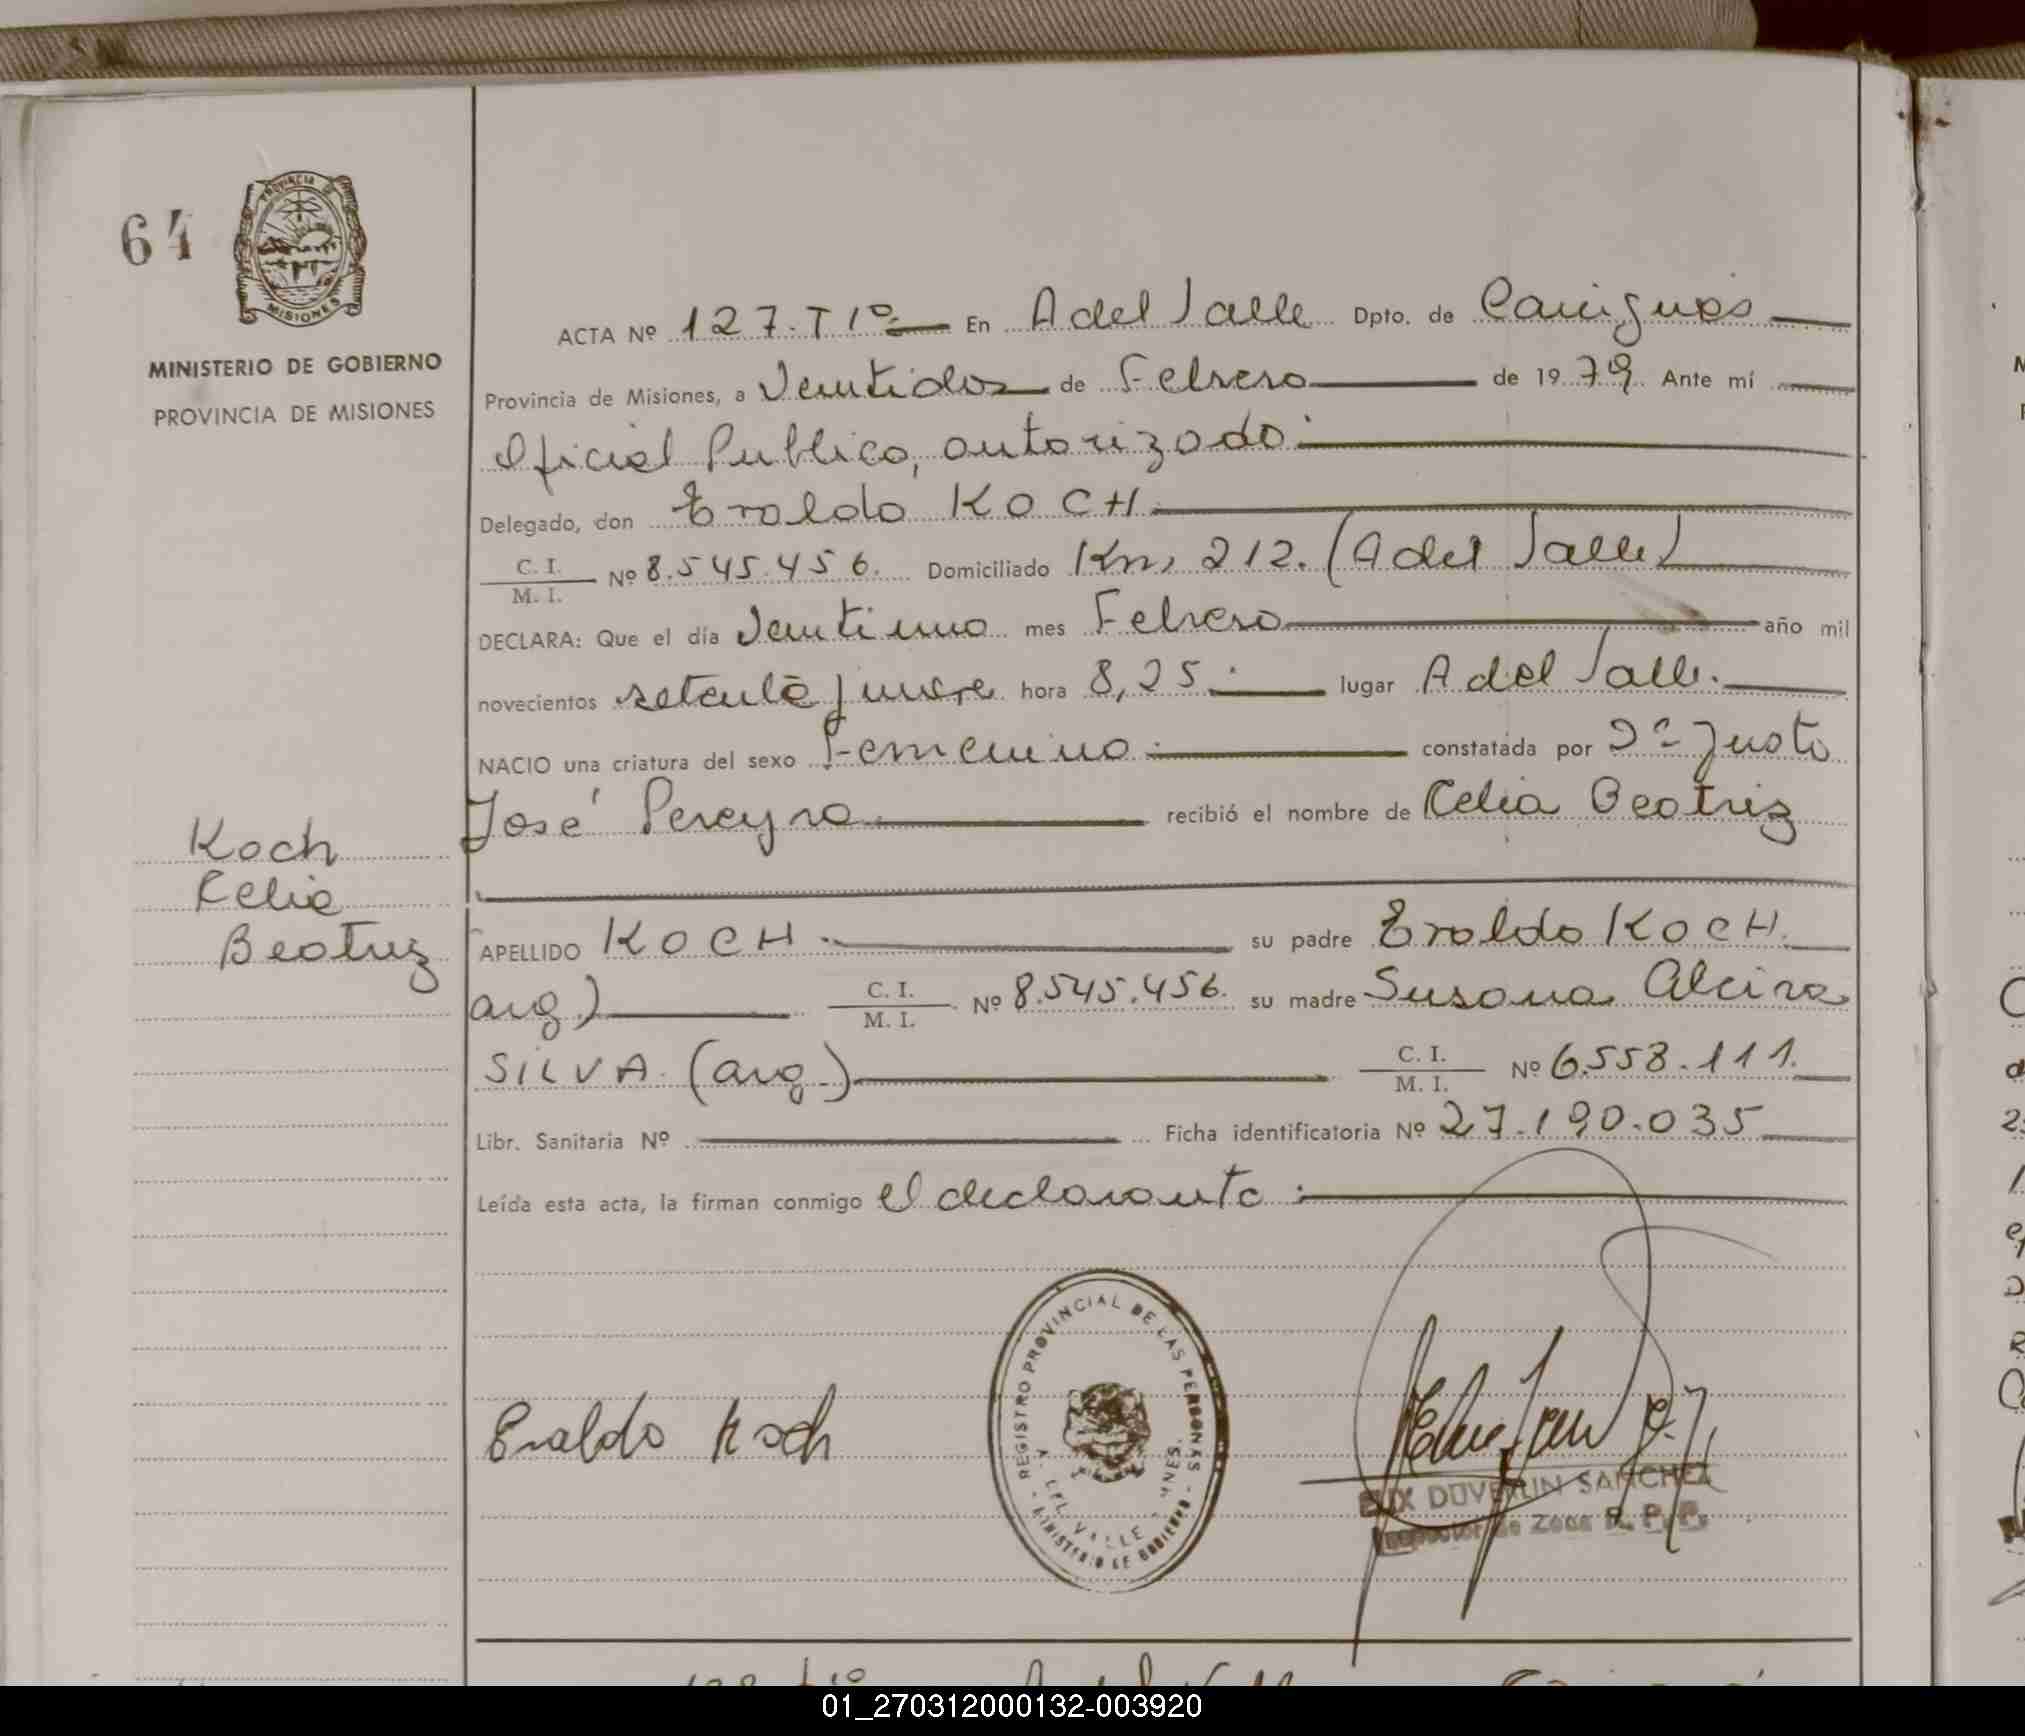 64
PROVINCIA D
MISIONES
MINISTERIO DE GOBIERNO
PROVINCIA DE MISIONES
ACTA Nº 127. T 1º En A del Valle Dpto. de Cainguás
Provincia de Misiones, a Veintidos de Febrero de 1979 Ante mí
Oficial Publico, autorizado
Delegado, don Eraldo KOCH
C. I.
M. I. Nº 8.545.456. Domiciliado Km, 212. (A del Valle)
DECLARA: Que el día Veintiuno mes Febrero año mil
novecientos setenta y nueve hora 8,25 lugar A del Valle.
NACIO una criatura del sexo Femenino constatada por Dº Justo
José Pereyra recibió el nombre de Celia Beatriz
Koch
Celia
Beatriz
APELLIDO KOCH su padre Eraldo KOCH.
arg) C. I.
M. I. Nº 8.545.456. su madre Susana Alcira
SILVA. (arg.) C. I.
M. I. Nº 6.558.111.
Libr. Sanitaria Nº Ficha identificatoria Nº 27.190.035
Leída esta acta, la firman conmigo el declarante
REGISTRO PROVINCIAL DE LAS PERSONAS
MINISTERIO DE GOBIERNO
VALLE
Eraldo Koch
DUVERLIN SANCHEZ
Inspector de Zona R. P. P.
01_270312000132-003920